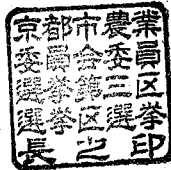 京都市農業
委員会委員
選挙第三区
選挙区選挙
長之印